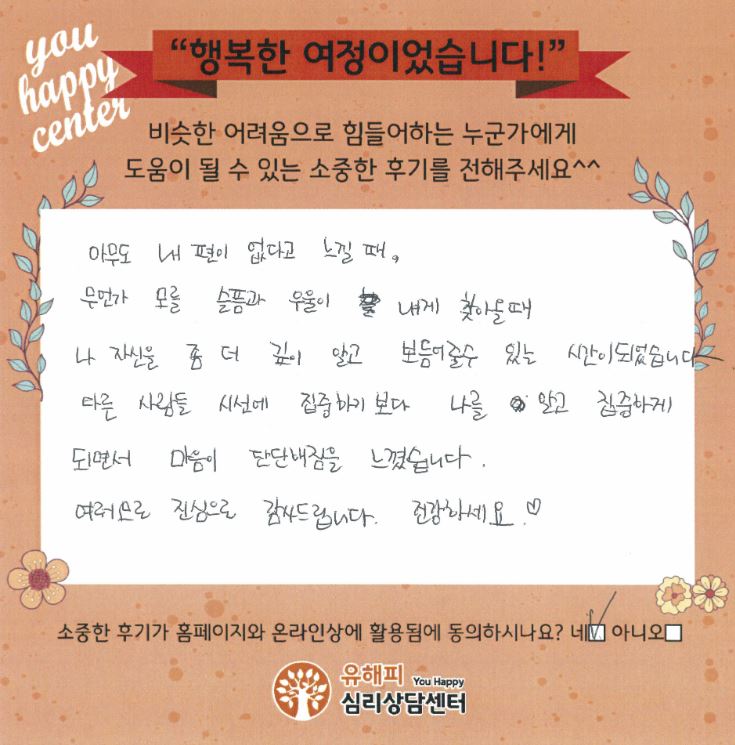 you
happy
center
“행복한 여정이었습니다!”
비슷한 어려움으로 힘들어하는 누군가에게
도움이 될 수 있는 소중한 후기를 전해주세요^^
아무도 내 편이 없다고 느낄 때,
무언가 모를 슬픔과 우울이 내게 찾아올때
나 자신을 좀 더 깊이 알고 보듬어줄수 있는 시간이되었습니다
타른 사람들 시선에 집중하기 보다 나를 알고 집중하게
되면서 마음이 단단해짐을 느꼈습니다.
여러모로 진심으로 감사드립니다. 건강하세요.♡
소중한 후기가 홈페이지와 온라인상에 활용됨에 동의하시나요? 네☑ 아니오☐
유해피 You Happy
심리상담센터